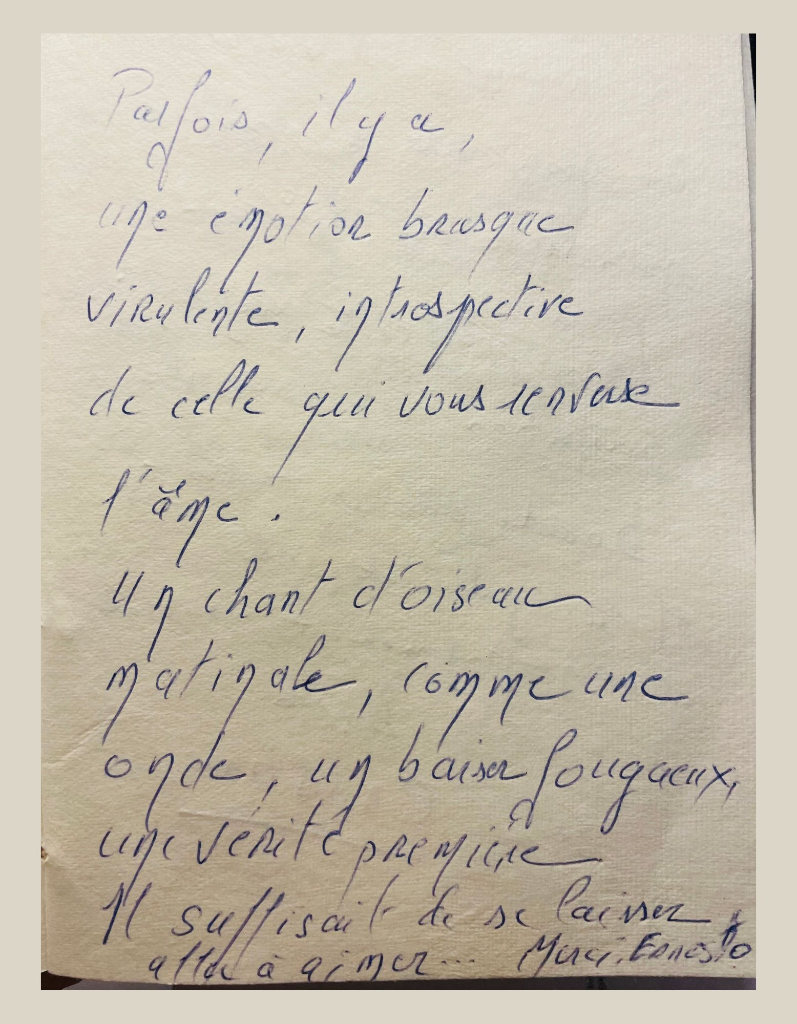 Parfois, il y a,
une émotion brusque
virulente, introspective
de celle qui vous renverse
l'âme.
Un chant d'oiseau
matinale, comme une
onde, un baiser fougueux,
une vérité première
Il suffisait de se laisser
aller à aimer... Merci. Ernesto